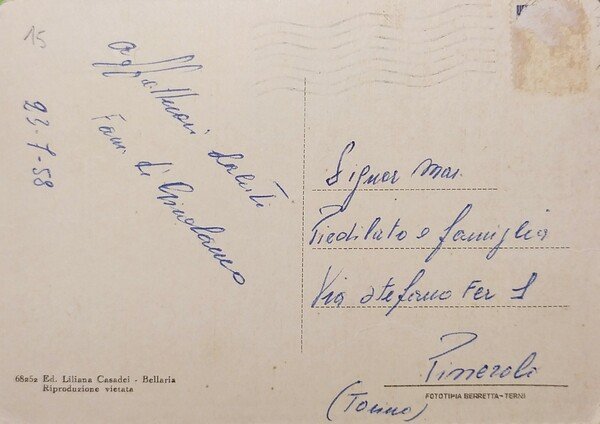 15
Affettuosi Saluti
Fam. di Girolamo
23-7-58
Signor Mar.
Piedilato e famiglia
Via Stefano Fer 1
Pinerolo
(Torino)
68252 Ed. Liliana Casadei - Bellaria
Riproduzione vietata
FOTOTIPIA BERRETTA - TERNI